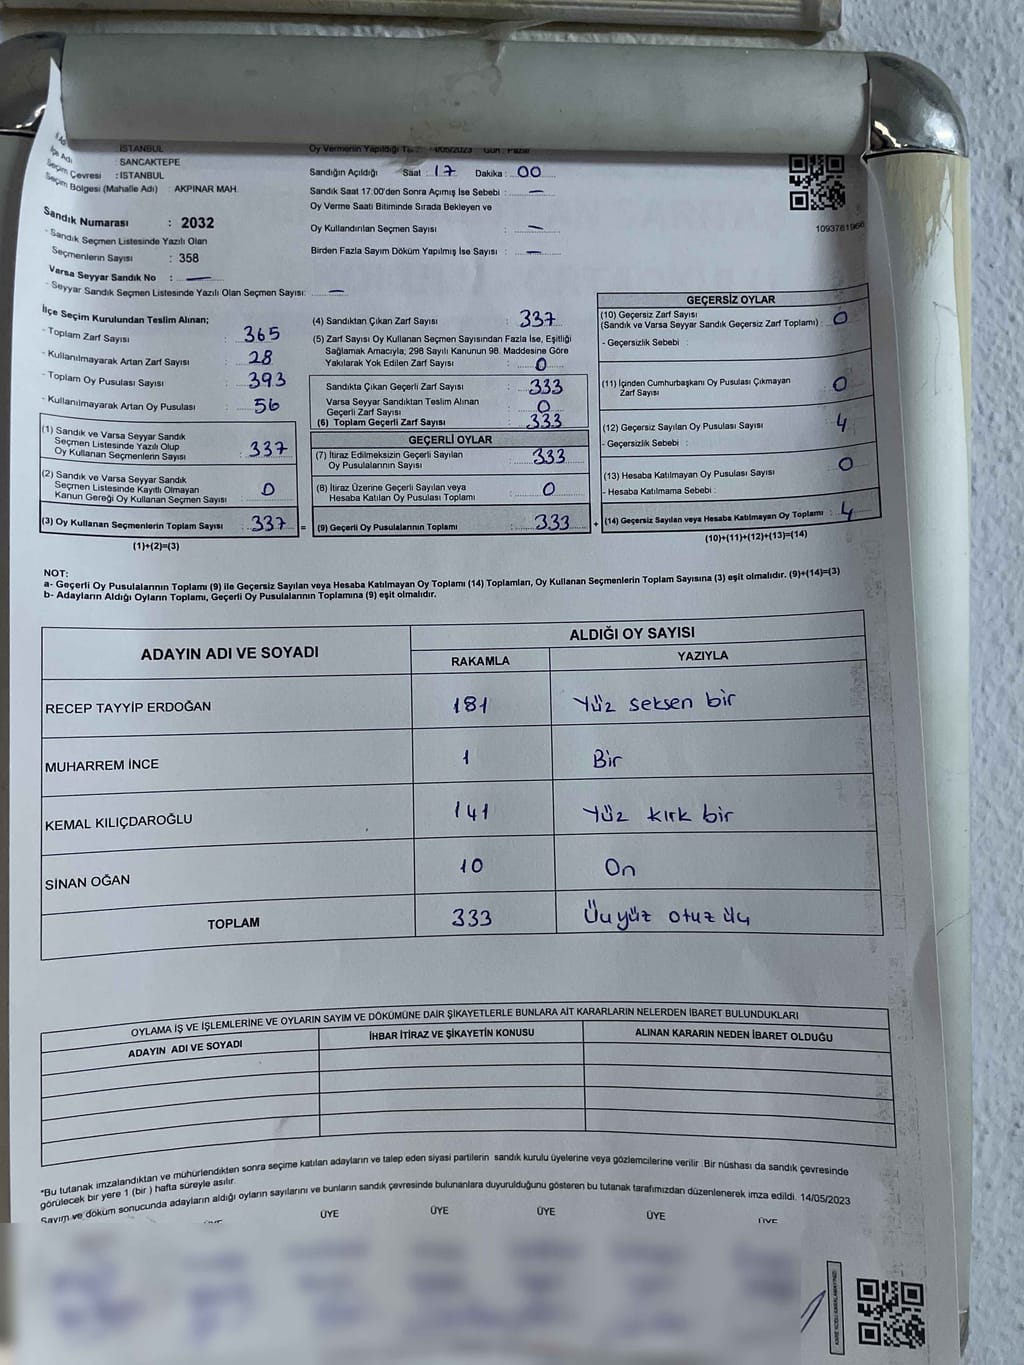 İl Adı
İSTANBUL
İlçe Adı : SANCAKTEPE
Seçim Çevresi : İSTANBUL
Seçim Bölgesi (Mahalle Adı) : AKPINAR MAH.
Sandık Numarası : 2032
- Sandık Seçmen Listesinde Yazılı Olan
Seçmenlerin Sayısı : 358
Varsa Seyyar Sandık No : —
- Seyyar Sandık Seçmen Listesinde Yazılı Olan Seçmen Sayısı: —
Oy Vermenin Yapıldığı 14/05/2023 Gün : Pazar
Sandığın Açıldığı Saat : 17 Dakika : 00
Sandık Saat 17:00'den Sonra Açımış İse Sebebi : —
Oy Verme Saati Bitiminde Sırada Bekleyen ve
Oy Kullandırılan Seçmen Sayısı : —
Birden Fazla Sayım Döküm Yapılmış İse Sayısı : —
1093781966
İlçe Seçim Kurulundan Teslim Alınan;
- Toplam Zarf Sayısı : 365
- Kullanılmayarak Artan Zarf Sayısı : 28
- Toplam Oy Pusulası Sayısı : 393
- Kullanılmayarak Artan Oy Pusulası : 56
(1) Sandık ve Varsa Seyyar Sandık
Seçmen Listesinde Yazılı Olup
Oy Kullanan Seçmenlerin Sayısı : 337
(2) Sandık ve Varsa Seyyar Sandık
Seçmen Listesinde Kayıtlı Olmayan
Kanun Gereği Oy Kullanan Seçmen Sayısı : 0
(3) Oy Kullanan Seçmenlerin Toplam Sayısı : 337 =
(1)+(2)=(3)
(4) Sandıktan Çıkan Zarf Sayısı : 337
(5) Zarf Sayısı Oy Kullanan Seçmen Sayısından Fazla İse, Eşitliği
Sağlamak Amacıyla; 298 Sayılı Kanunun 98. Maddesine Göre
Yakılarak Yok Edilen Zarf Sayısı : 0
Sandıkta Çıkan Geçerli Zarf Sayısı : 333
Varsa Seyyar Sandıktan Teslim Alınan
Geçerli Zarf Sayısı : 0
(6) Toplam Geçerli Zarf Sayısı : 333
GEÇERLİ OYLAR
(7) İtiraz Edilmeksizin Geçerli Sayılan
Oy Pusulalarının Sayısı : 333
(8) İtiraz Üzerine Geçerli Sayılan veya
Hesaba Katılan Oy Pusulası Toplamı : 0
(9) Geçerli Oy Pusulalarının Toplamı : 333 +
GEÇERSİZ OYLAR
(10) Geçersiz Zarf Sayısı
(Sandık ve Varsa Seyyar Sandık Geçersiz Zarf Toplamı) : 0
- Geçersizlik Sebebi :
(11) İçinden Cumhurbaşkanı Oy Pusulası Çıkmayan
Zarf Sayısı : 0
(12) Geçersiz Sayılan Oy Pusulası Sayısı : 4
- Geçersizlik Sebebi :
(13) Hesaba Katılmayan Oy Pusulası Sayısı : 0
- Hesaba Katılmama Sebebi :
(14) Geçersiz Sayılan veya Hesaba Katılmayan Oy Toplamı : 4
(10)+(11)+(12)+(13)=(14)
NOT:
a- Geçerli Oy Pusulalarının Toplamı (9) ile Geçersiz Sayılan veya Hesaba Katılmayan Oy Toplamı (14) Toplamları, Oy Kullanan Seçmenlerin Toplam Sayısına (3) eşit olmalıdır. (9)+(14)=(3)
b- Adayların Aldığı Oyların Toplamı, Geçerli Oy Pusulalarının Toplamına (9) eşit olmalıdır.
ADAYIN ADI VE SOYADI
ALDIĞI OY SAYISI
RAKAMLA YAZIYLA
RECEP TAYYİP ERDOĞAN 181 Yüz seksen bir
MUHARREM İNCE 1 Bir
KEMAL KILIÇDAROĞLU 141 Yüz kırk bir
SİNAN OĞAN 10 On
TOPLAM 333 Üçyüz otuz üç
OYLAMA İŞ VE İŞLEMLERİNE VE OYLARIN SAYIM VE DÖKÜMÜNE DAİR ŞİKAYETLERLE BUNLARA AİT KARARLARIN NELERDEN İBARET BULUNDUKLARI
ADAYIN ADI VE SOYADI İHBAR İTİRAZ VE ŞİKAYETİN KONUSU ALINAN KARARIN NEDEN İBARET OLDUĞU
*Bu tutanak imzalandıktan ve mühürlendikten sonra seçime katılan adayların ve talep eden siyasi partilerin sandık kurulu üyelerine veya gözlemcilerine verilir. Bir nüshası da sandık çevresinde
görülecek bir yere 1 (bir ) hafta süreyle asılır.
Sayım ve döküm sonucunda adayların aldığı oyların sayılarını ve bunların sandık çevresinde bulunanlara duyurulduğunu gösteren bu tutanak tarafımızdan düzenlenerek imza edildi. 14/05/2023
ÜYE ÜYE ÜYE ÜYE ÜYE ÜYE